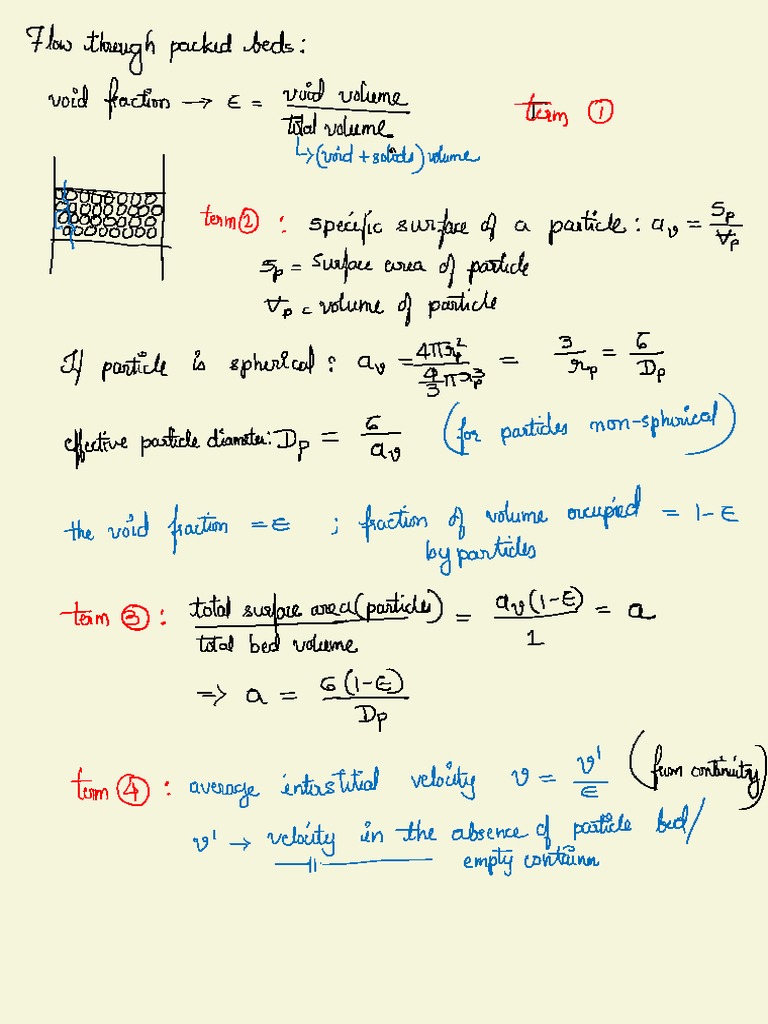 Flow through packed beds:
void fraction → ε = void volume / total volume term ①
↳ (void + solids) volume
term ② : specific surface of a particle: a_v = S_p / V_p
S_p = surface area of particle
V_p = volume of particle
If particle is spherical: a_v = 4πr_p² / (4/3 πr_p³) = 3 / r_p = 6 / D_p
effective particle diameter: D_p = 6 / a_v (for particles non-spherical)
the void fraction = ε ; fraction of volume occupied = 1-ε
by particles
term ③ : total surface area (particles) / total bed volume = a_v (1-ε) / 1 = a
⇒ a = 6(1-ε) / D_p
term ④ : average interstitial velocity v = v' / ε (from continuity)
v' → velocity in the absence of particle bed/
—||— empty container